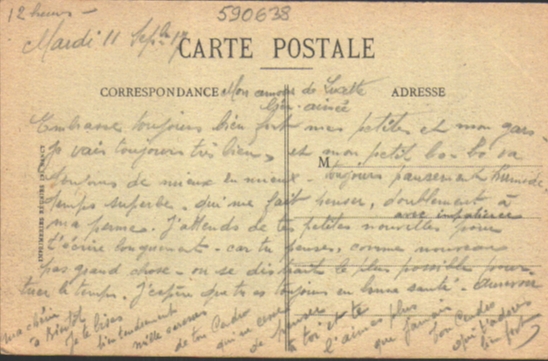 12 heures -
590638
Mardi 11 Sept 17
CARTE POSTALE
CORRESPONDANCE
ADRESSE
Mon amour de Lucette
bien-aimée
M
IMPRIMERIES RÉUNIES DE NANCY
Embrasse toujours bien fort mes petites et mon gars
je vais toujours très bien et mon petit bobo va
toujours de mieux en mieux. Toujours pansement humide
temps superbe. qui me fait penser, doublement à
ma perme. J'attends de tes petites nouvelles pour
avec impatience
t'écrire longuement. car tu penses, comme nouveau
pas grand chose - on se distrait le plus possible pour
tuer le temps. J'espère que tu es toujours en bonne santé.
ma chérie
à Bientôt
je te
bien tendrement
mille caresses
de ton
qui ne cesse
de penser
à toi et te
l'aime plus
que jamais
ton
qui t'adore
bien fort